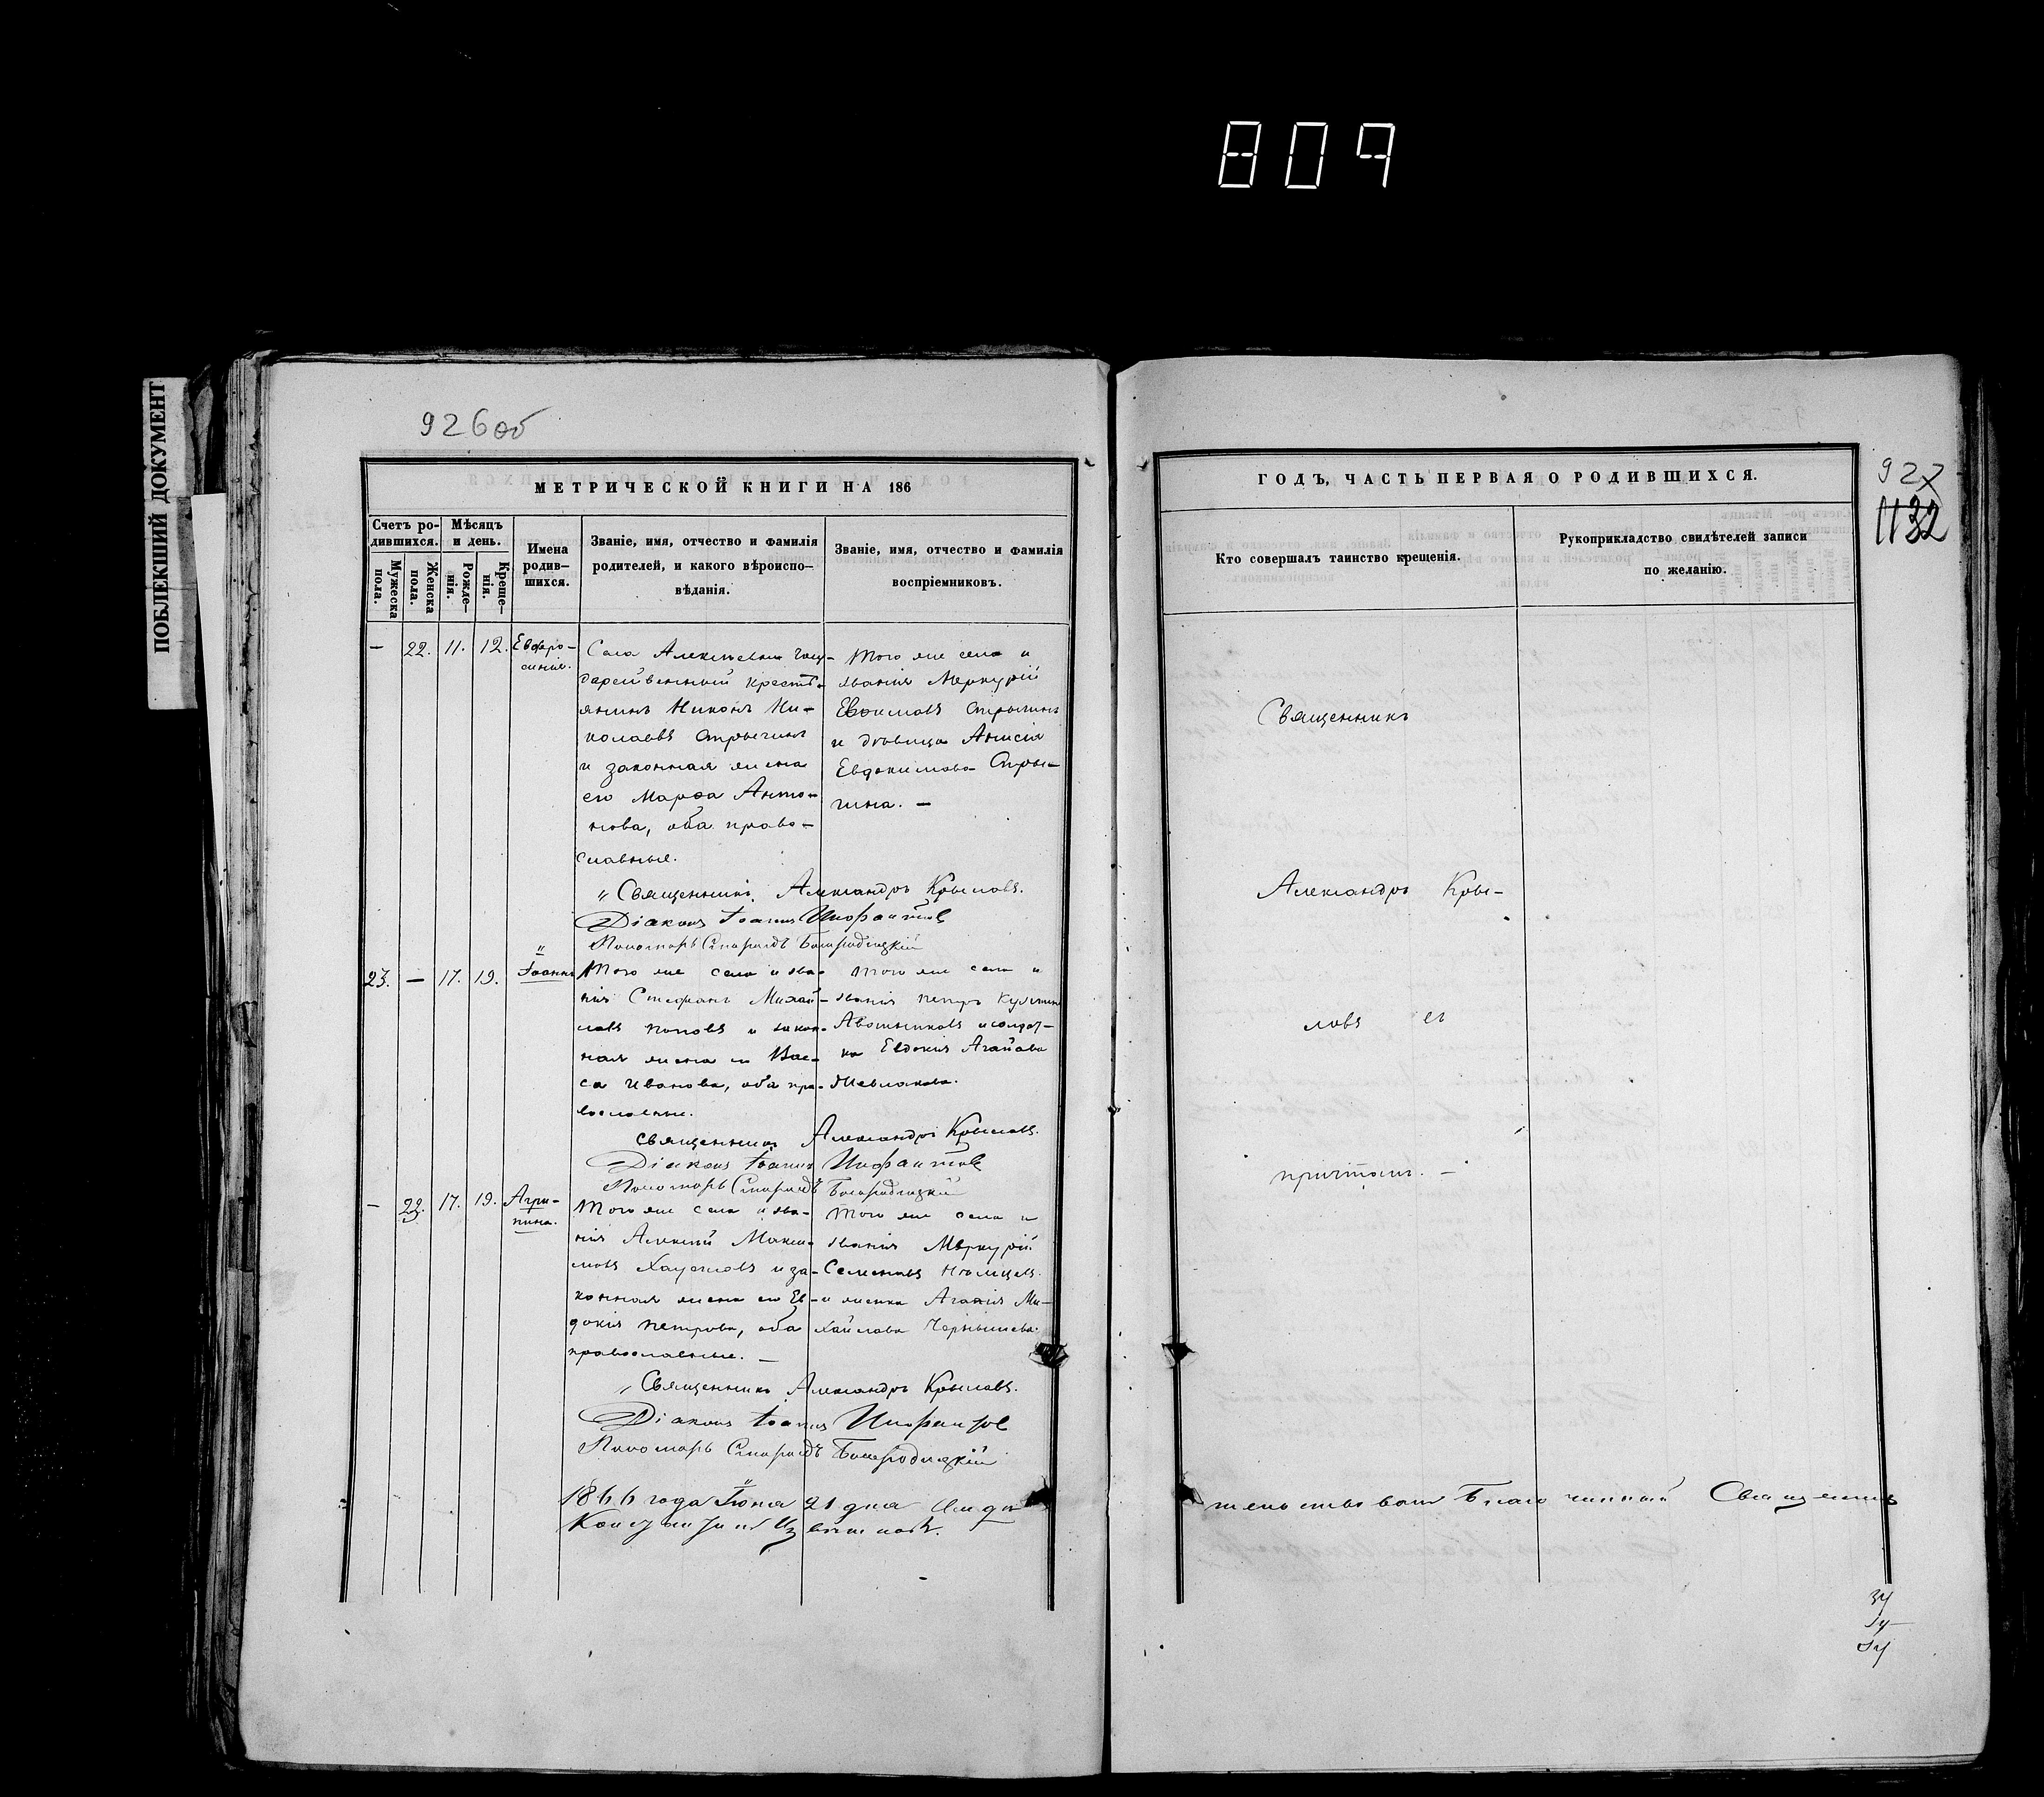 809
ПОБЛЕКШИЙ ДОКУМЕНТ
926об
МЕТРИЧЕСКОЙ КНИГИ НА 186
Счетъ ро-
дившихся.
Мужеска
пола.
Женска
пола.
Мѣсяцъ
и день.
Рожде-
нія.
Креще-
нія.
Имена
родив-
шихся.
Званіе, имя, отчество и фамилія
родителей, и какого вѣроиспо-
вѣданія.
Званіе, имя, отчество и фамилія
воспріемниковъ.
— 22. 11. 12. Евфро-
синія.
Села Алексѣевки госу-
дарственный кресть-
янинъ Никонъ Ни-
колаевъ Стрыгинъ
и законная жена
его Марѳа Анто-
нова, оба право-
славные.
Того же села и
званія Меркурій
Стрыгинъ
и дѣвица Анисія
Евдокимова Стры-
гина. —
Священникъ Александръ Крыловъ.
Діаконъ Іоаннъ
Пономарь Спиридъ Богородицкій
23. — 17. 19. Іоаннъ
Того же села и зва-
нія Стефанъ Михай-
ловъ Поповъ и закон-
ная жена его Вас-
са Иванова, оба пра-
вославные.
Того же села и
званія Петръ Кузьминъ
и солдат-
ка Евдокія
Священникъ Александръ Крыловъ.
Діаконъ Іоаннъ
Пономарь Спиридъ Богородицкій
— 23. 17. 19. Агри-
пина.
Того же села и зва-
нія Алексѣй Макси-
мовъ и за-
конная жена его Ев-
докія Петрова, оба
православные. —
Того же села и
званія Меркурій
Семеновъ
и женка Агафія Ми-
хайлова Чернышева.
Священникъ Александръ Крыловъ.
Діаконъ Іоаннъ
Пономарь Спиридъ Богородицкій
1866 года Іюня 21 дня
ГОДЪ, ЧАСТЬ ПЕРВАЯ О РОДИВШИХСЯ.
927
1132
Кто совершалъ таинство крещенія.
Рукоприкладство свидѣтелей записи
по желанію.
Священникъ
Александръ Кры-
ловъ съ
причтомъ. —
Благочинный Священникъ